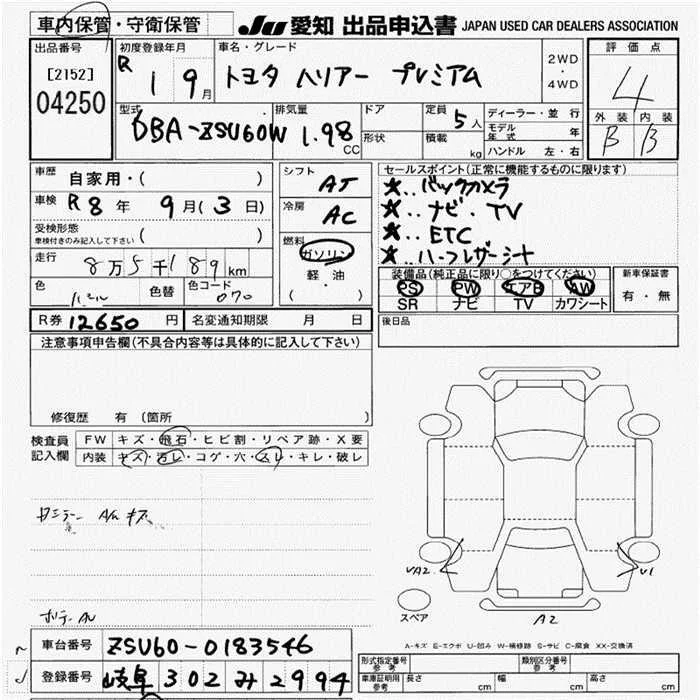 車内保管・守衛保管
JU 愛知 出品申込書 JAPAN USED CAR DEALERS ASSOCIATION
出品番号
[2152]
04250
初度登録年月
R 1 9月
車名・グレード
トヨタ ハリアー プレミアム
2WD
・
4WD
評価点
4
外装 内装
B B
型式
DBA-ZSU60W
排気量
1.98 CC
ドア
形状
定員
5人
積載
kg
ディーラー・並行
モデル年式 年
ハンドル 左・右
車歴 自家用・( )
車検 R8年 9月(3日)
受検形態
車検付きのみ記入して下さい ( )
走行 8万5千189km
色 色替 色コード
070
シフト AT
冷房 AC
燃料
ガソリン
軽・油
( )
セールスポイント(正常に機能するものに限ります)
★‥バックカメラ
★‥ナビ・TV
★‥ETC
★‥ハーフレザーシート
装備品(純正品に限り○をつけてください)
PS PW エアB AW
SR ナビ TV カワシート
新車保証書
有・無
R券 12650円 名変通知期限 月 日
後日品
注意事項申告欄(不具合内容等は具体的に記入して下さい)
修復歴 有 (箇所
検査員記入欄
FW キズ・飛石・ヒビ割・リペア跡・X要
内装 キズ・汚レ・コゲ・穴・スレ・キレ・破レ
VA2 U1
スペア A2
A-キズ E-エクボ U-凹み W-補修跡 S-サビ C-腐食 XX-交換済
車台番号 ZSU60-0183546
登録番号 岐阜 302 み 2994
型式指定番号 参考 類別区分番号 参考
車庫証明用 参考 長さ cm 幅 cm 高さ cm